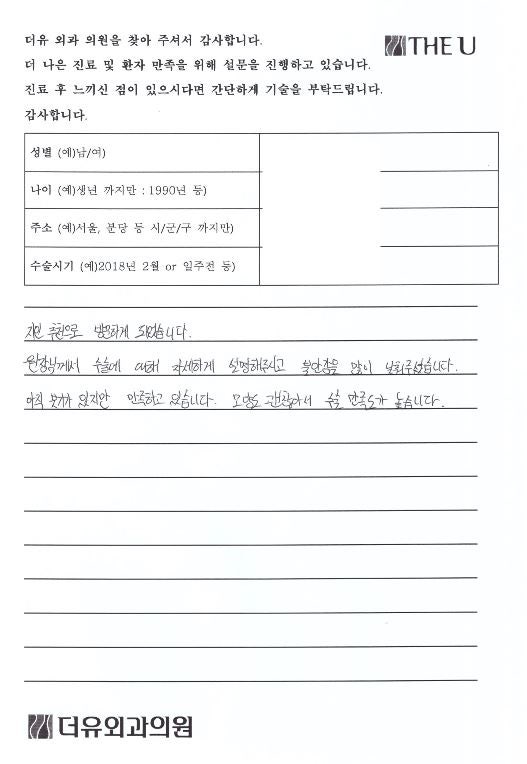 더유 외과 의원을 찾아 주셔서 감사합니다.
THE U
더 나은 진료 및 환자 만족을 위해 설문을 진행하고 있습니다.
진료 후 느끼신 점이 있으시다면 간단하게 기술을 부탁드립니다.
감사합니다.
성별 (예)남/여)
나이 (예)생년 까지만 : 1990년 등)
주소 (예)서울, 분당 등 시/군/구 까지만)
수술시기 (예)2018년 2월 or 일주전 등)
지인 추천으로 방문하게 되었습니다.
원장님께서 수술에 대해 자세하게 설명해주시고 불안감을 많이 낮춰주셨습니다.
아직 붓기가 있지만 만족하고 있습니다. 모양도 괜찮아서 수술 만족도가 높습니다.
더유외과의원